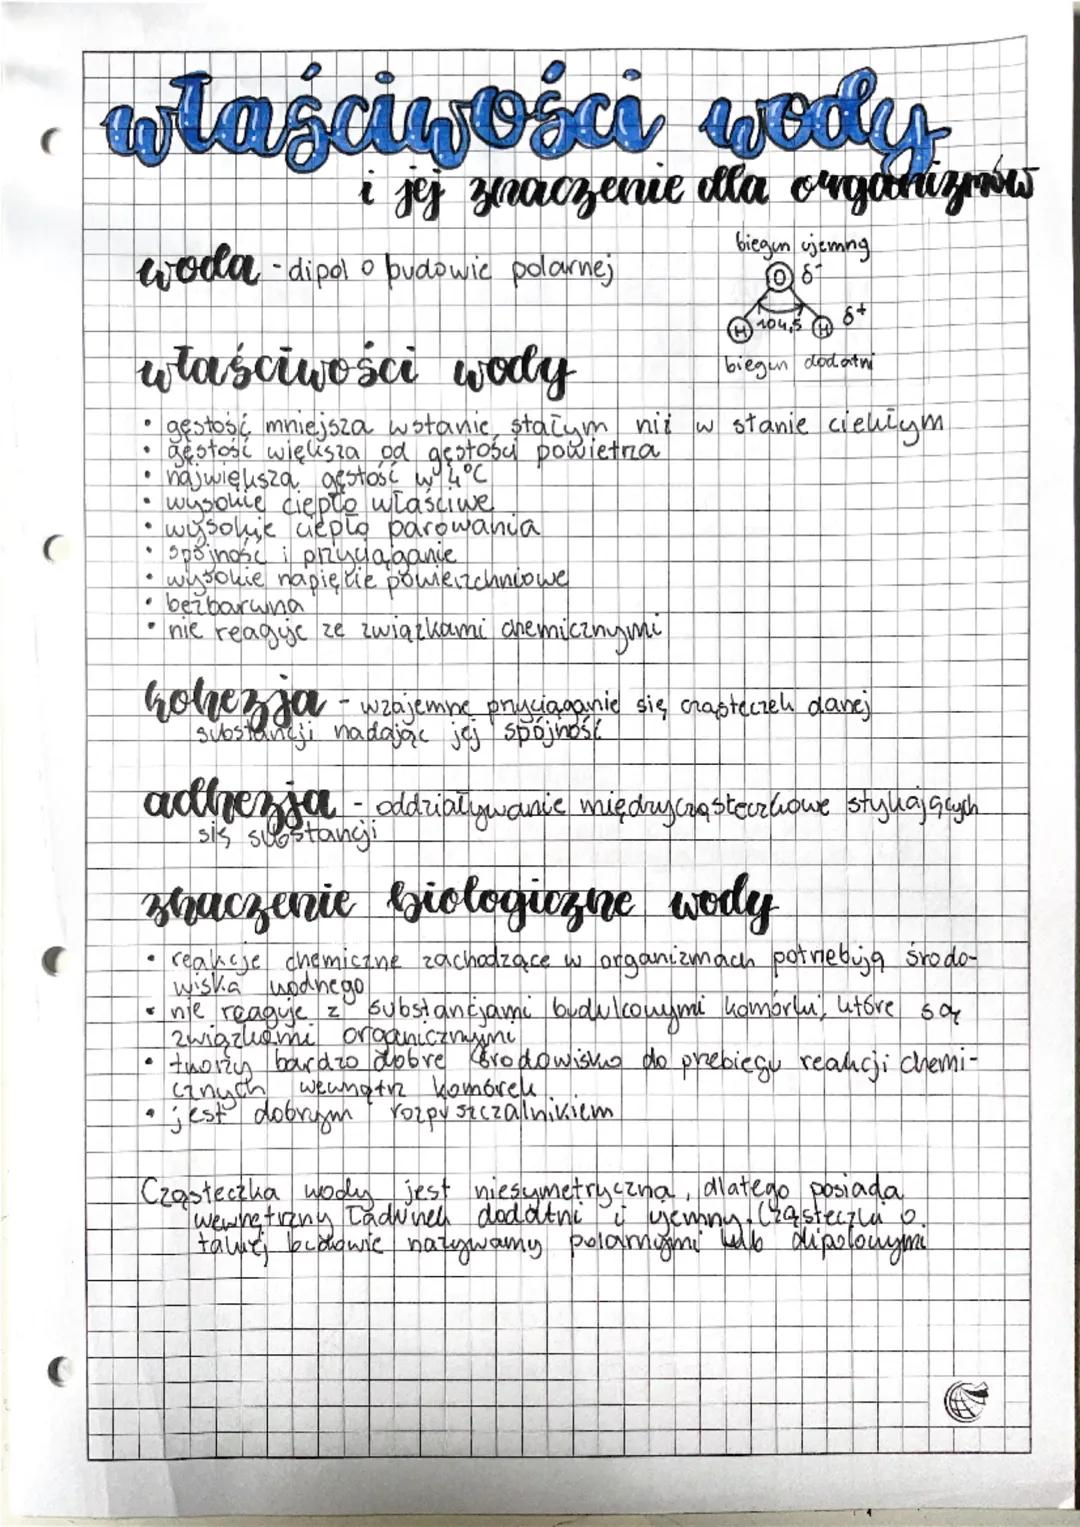 właściwości wody
i jej znaczenie dla organizmów
woda - dipol o budowie polarnej
biegun ujemny
O δ-
H 104,5 H δ+
biegun dodatni
właściwości wody
• gęstość mniejsza w stanie stałym niż w stanie ciekłym
• gęstość większa od gęstości powietrza
• największa gęstość w 4°C
• wysokie ciepło właściwe
• wysokie ciepło parowania
• spójność i przyciąganie
• wysokie napięcie powierzchniowe
• bezbarwna
• nie reaguje ze związkami chemicznymi
kohezja - wzajemne przyciąganie się cząsteczek danej
substancji nadając jej spójność
adhezja - oddziaływanie międzycząsteczkowe stykających
się substancji
znaczenie biologiczne wody
• reakcje chemiczne zachodzące w organizmach potrzebują środo-
wiska wodnego
• nie reaguje z substancjami budulcowymi komórki, które są
związkami organicznymi
• tworzy bardzo dobre środowisko do przebiegu reakcji chemi-
cznych wewnątrz komórek
• jest dobrym rozpuszczalnikiem
Cząsteczka wody jest niesymetryczna, dlatego posiada
wewnętrzny ładunek dodatni i ujemny. Cząsteczki o
takiej budowie nazywamy polarnymi lub dipolowymi